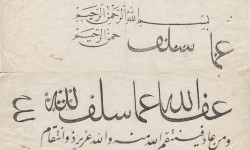 بسم الله الرحمن الرحيم
حمن الرحيم
عما سلف
عفا الله عما سلف
ومن عاد فينتقم الله منه والله عزيز ذو انتقام